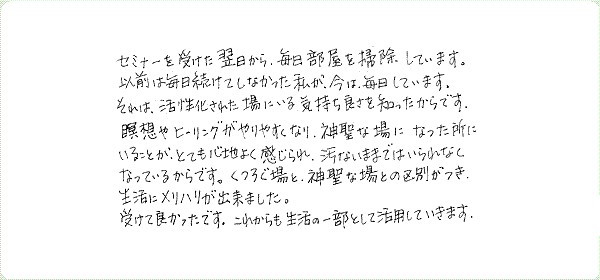 セミナーを受けた翌日から、毎日部屋を掃除しています。
以前は毎日続けてしなかった私が、今は、毎日しています。
それは、活性化された場にいる気持ち良さを知ったからです。
瞑想やヒーリングがやりやすくなり、神聖な場になった所に
いることが、とても心地よく感じられ、汚ないままではいられなく
なっているからです。くつろぐ場と、神聖な場との区別がつき、
生活にメリハリが出来ました。
受けて良かったです。これからも生活の一部として活用していきます。